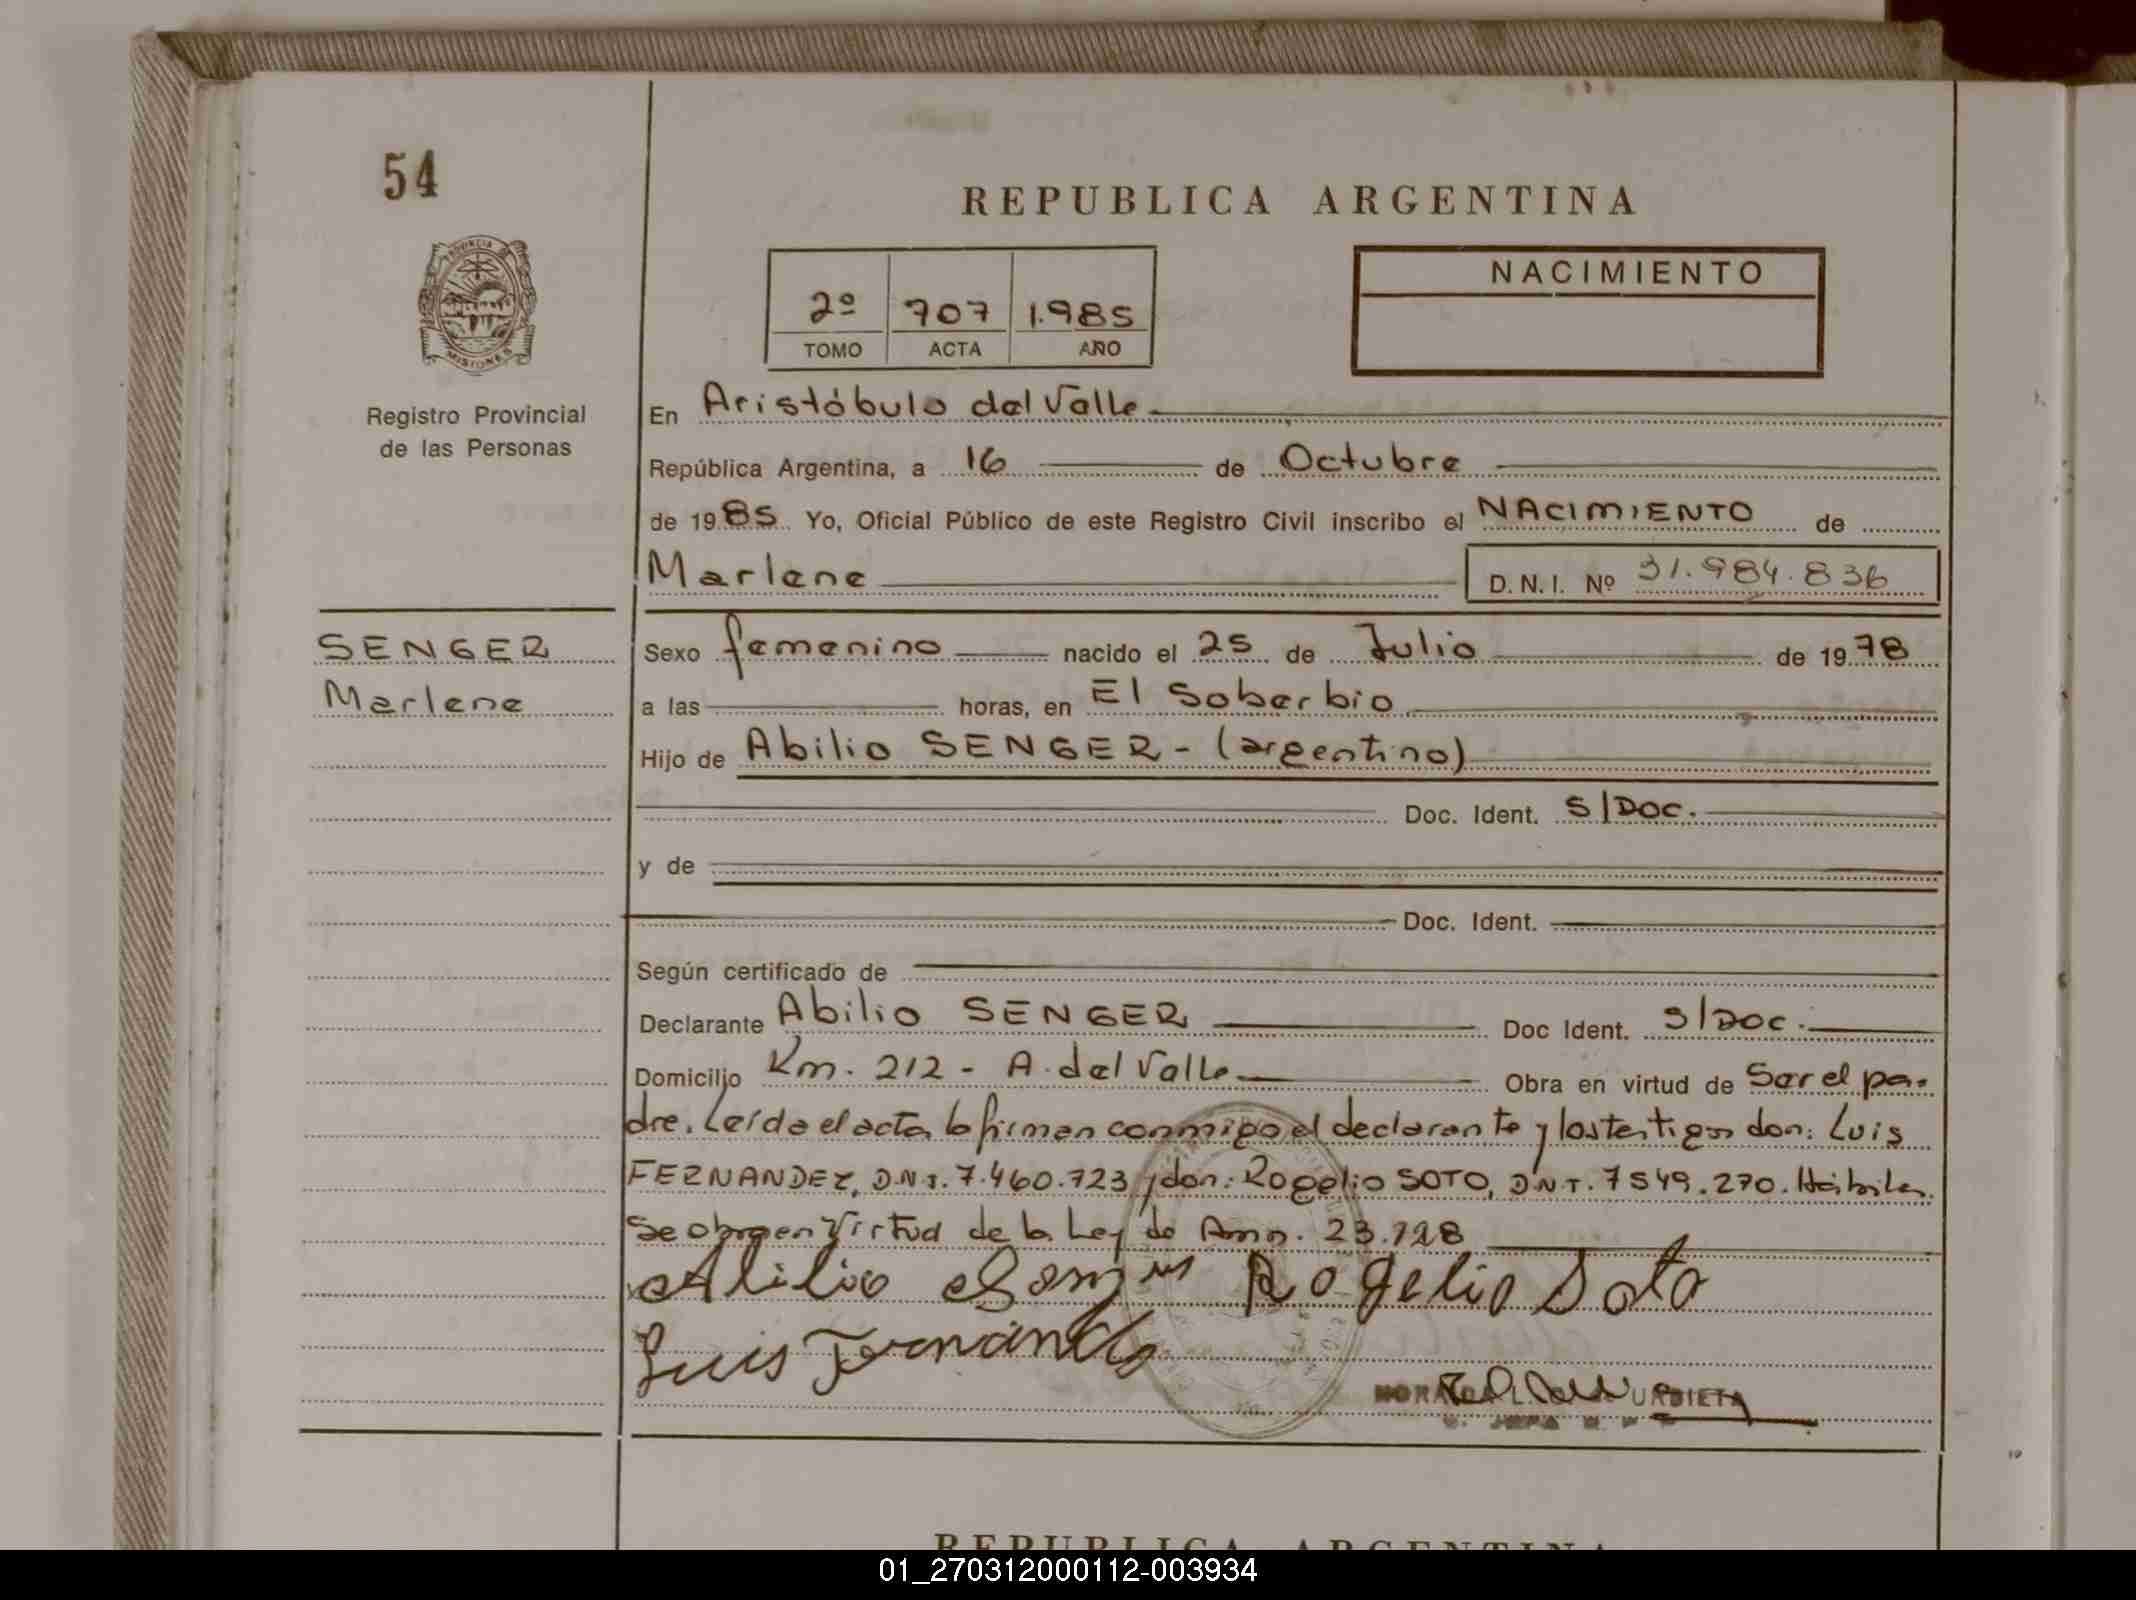 54
REPUBLICA ARGENTINA
PROVINCIA DE
MISIONES
2º 707 1.985
TOMO ACTA AÑO
NACIMIENTO
Registro Provincial
de las Personas
En Aristóbulo del Valle.
República Argentina, a 16 de Octubre
de 1985 Yo, Oficial Público de este Registro Civil inscribo el NACIMIENTO de
Marlene D.N.I. Nº 31.984.836
SENGER
Marlene
Sexo femenino nacido el 25 de Julio de 1978
a las horas, en El Soberbio
Hijo de Abilio SENGER - (argentino)
Doc. Ident. S/DOC.
y de
Doc. Ident.
Según certificado de
Declarante Abilio SENGER Doc Ident. S/DOC.
Domicilio Km. 212 - A. del Valle Obra en virtud de Ser el pa-
dre. Leída el acta, la firman conmigo el declarante y los testigos don: Luis
FERNANDEZ, D.N.I. 7.460.723 y don: Rogelio SOTO, D.N.I. 7549.270. Hábiles.
Se obra en Virtud de la Ley de Amn. 23.128
Abilio Rogelio Soto
Luis Fernandez
URBIETA
REPUBLICA ARGENTINA
01_270312000112-003934